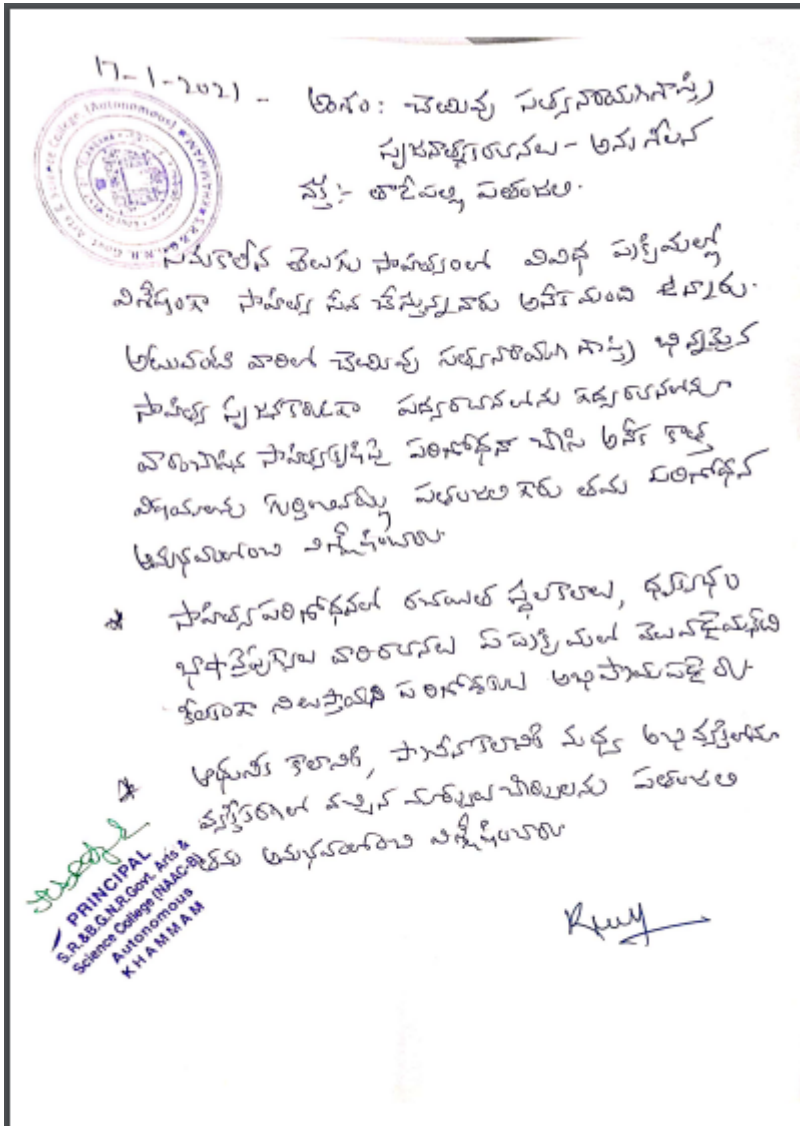 17-1-2021 - అంశం: చెయివు సత్యనారాయణశాస్త్రి
సృజనాత్మకరచనలు - అనుశీలన
వక్త :- తాడేపల్లి పతంజలి.
సమకాలీన తెలుగు సాహిత్యంలో వివిధ ప్రక్రియల్లో
విశేషంగా సాహిత్య సేవ చేస్తున్నవారు అనేక మంది ఉన్నారు.
అటువంటి వారిలో చెయివు సత్యనారాయణ శాస్త్రి భిన్నమైన
సాహిత్య సృజనకారుడిగా పద్యరచనలోను గద్యరచనలోనూ
సాహిత్యకృషిపై పరిశోధనా చేసి అనేక కొత్త
విషయాలను పతంజలి గారు తమ పరిశోధన
అనుభవాలనుంచి విశ్లేషించారు
* సాహిత్య పరిశోధనలో రచయిత స్థలకాలాలు,
భాషా నైపుణ్యాలు వారి రచనలు ఏ ప్రక్రియలో
కీలకంగా నిలుస్తాయని పరిశోధకులు అభిప్రాయపడ్డారు
* ఆధునిక కాలానికి, ప్రాచీనకాలానికి మధ్య అభివ్యక్తిలోనూ
వ్యక్తీకరణలో వచ్చిన మార్పులు చేర్పులను పతంజలి
తమ అనుభవాలనుంచి విశ్లేషించారు
PRINCIPAL
S.R.&B.G.N.R.Govt. Arts &
Science College (NAAC-B)
Autonomous
KHAMMAM